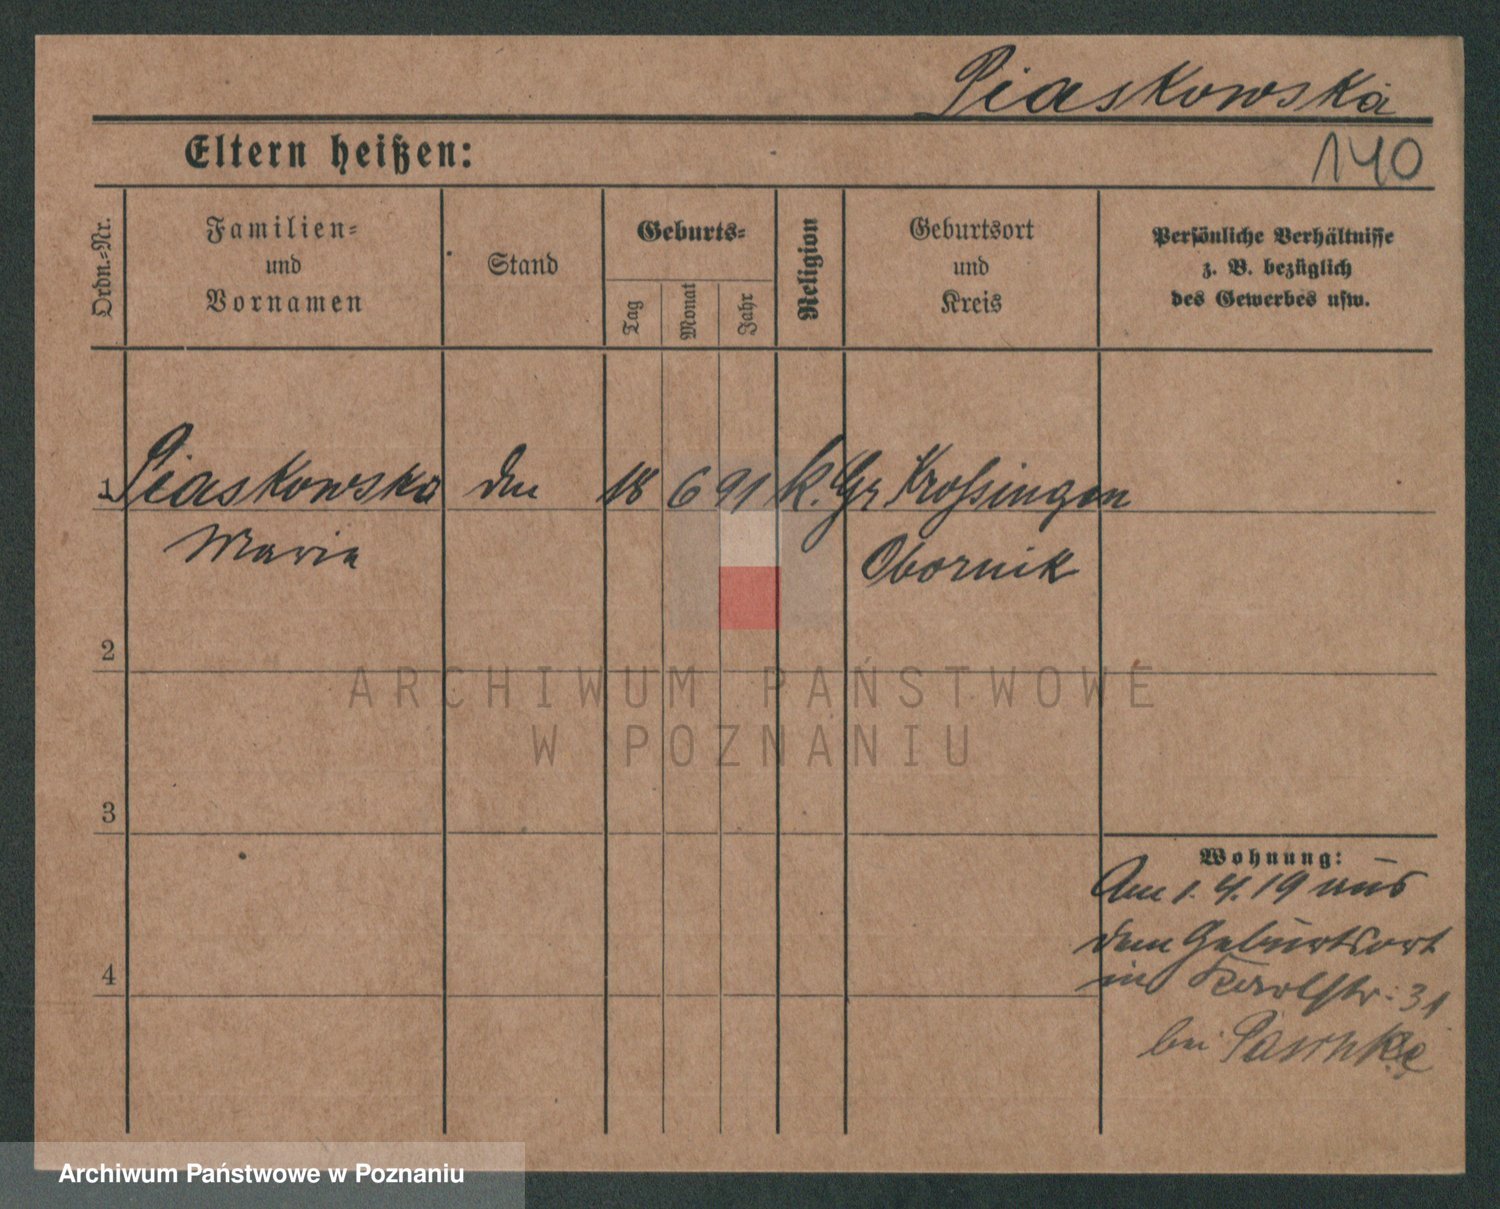 Piaskowska
140
Eltern heißen:
Ordn.-Nr.
Familien-
und
Vornamen
Stand
Geburts-
Tag
Monat
Jahr
Religion
Geburtsort
und
Kreis
Persönliche Verhältnisse
z. B. bezüglich
des Gewerbes usw.
1 Piaskowska 18 6 91 k. Gr Krossingen
Marie Obornik
2
ARCHIWUM PAŃSTWOWE
W POZNANIU
3
Wohnung:
Am 1. 4. 19 aus
dem Geburtsort
4
in Karlstr: 31
bei Paschke
Archiwum Państwowe w Poznaniu